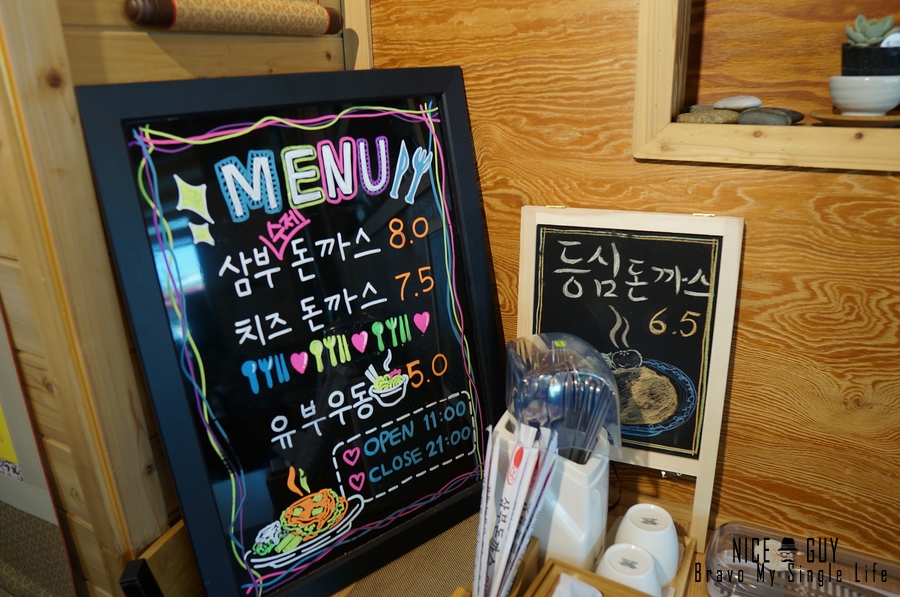 MENU
수제
삼부 돈까스 8.0
치즈 돈까스 7.5
유부우동 5.0
OPEN 11:00
CLOSE 21:00
등심돈까스
6.5
삼부돈까스
NICE GUY
Bravo My Single Life